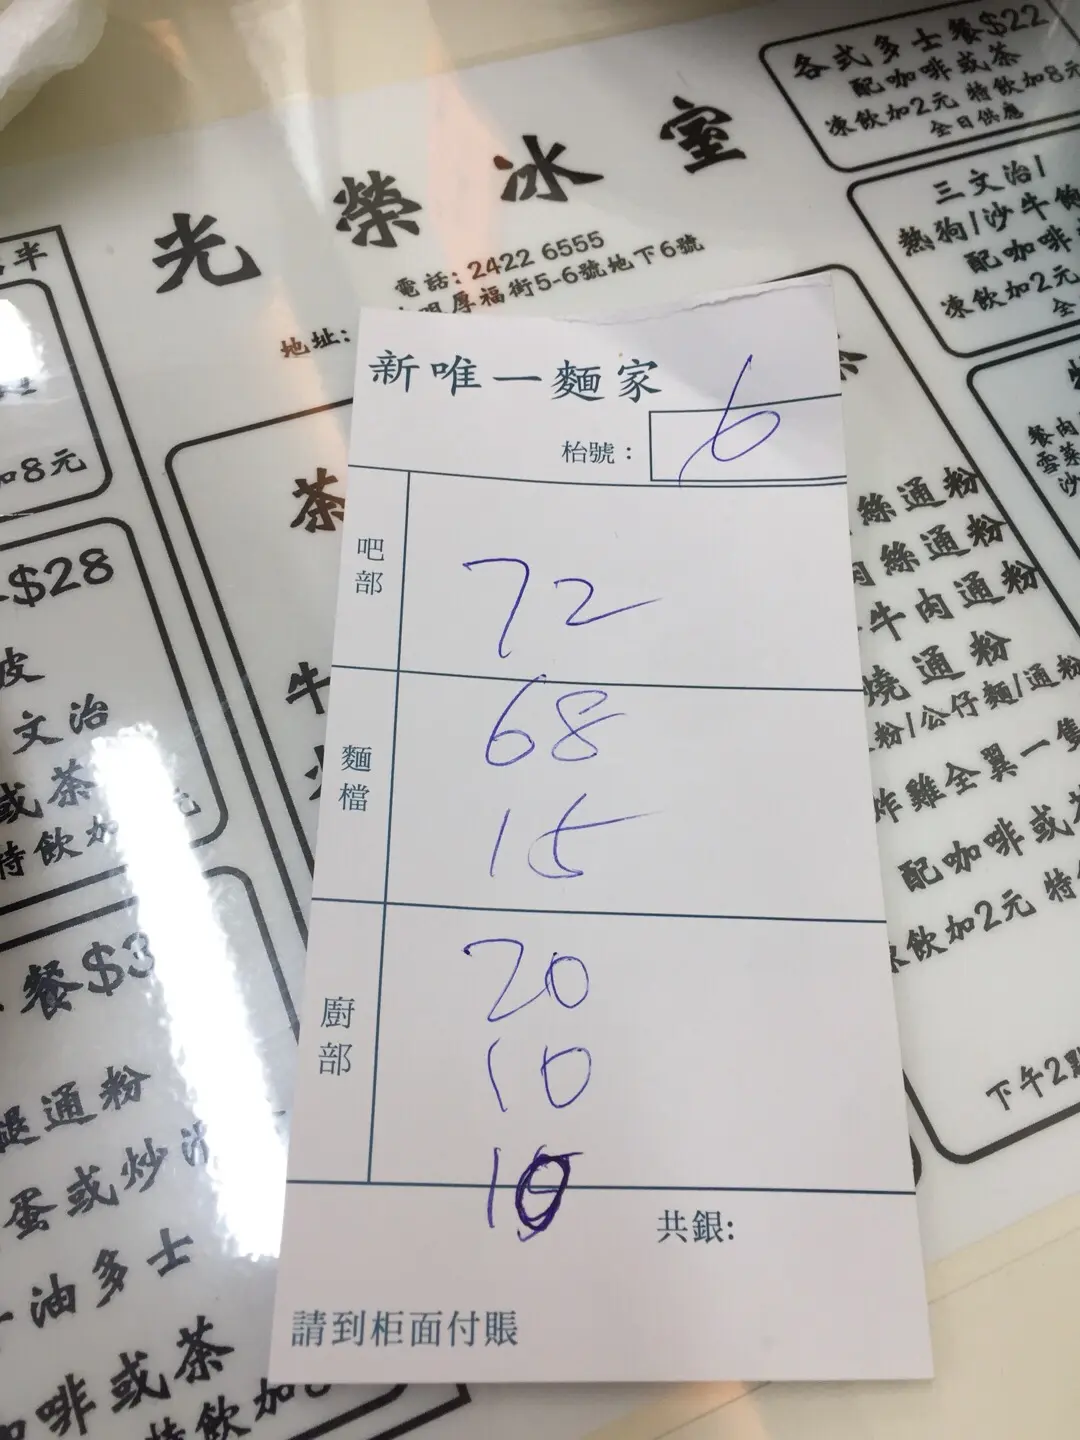 各式多士餐$22
配咖啡或茶
凍飲加2元 特飲加8元
全日供應
光榮冰室
電話: 2422 6555
地址:
厚福街5-6號地下6號
三文治/
熱狗/沙牛飽
配咖啡
凍飲加2元
全
半
加8元
$28
皮
文治
或茶
特飲加 元
餐$3
通粉
蛋或炒
油多士
咖啡或茶
特飲加
茶
牛
新唯一麵家
枱號：
6
吧部
72
麵檔
68
15
廚部
20
10
10
共銀:
請到柜面付賬
絲通粉
肉絲通粉
牛肉通粉
燒通粉
粉/公仔麵/通粉
炸雞全翼一隻
配咖啡或茶
凍飲加2元 特
下午2點
餐肉
雪菜
沙